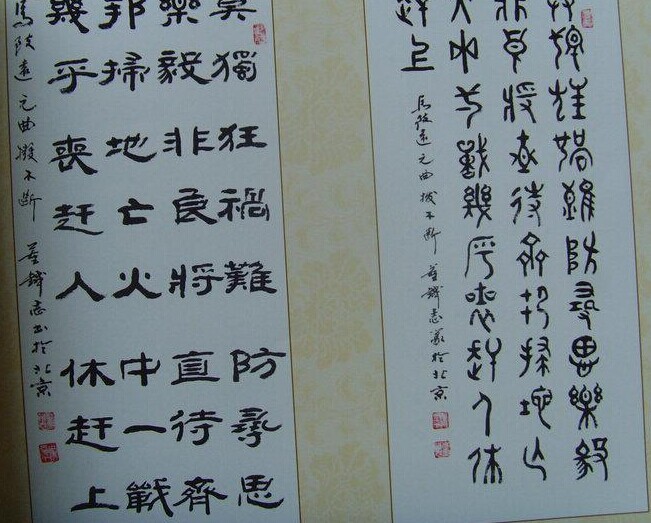 莫獨狂禍難防尋思樂毅
非良將直待齊邦掃地亡
火中一戰幾乎喪趕人休
趕上
馬致遠元曲撥不斷 董鐵志篆於北京
莫獨狂禍難防尋思
樂毅非良將直待齊
邦掃地亡火中一戰
幾乎喪趕人休趕上
馬致遠元曲撥不斷 董鐵志書於北京